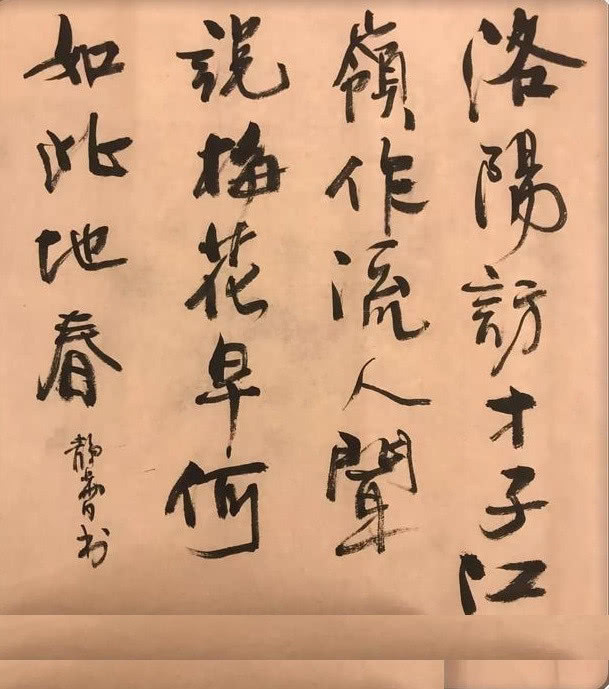 洛陽訪才子江
嶺作流人聞
說梅花早何
如此地春